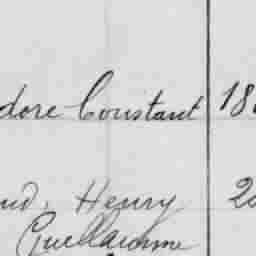 dore Constant 18
ud, Henry 2
Guellaume